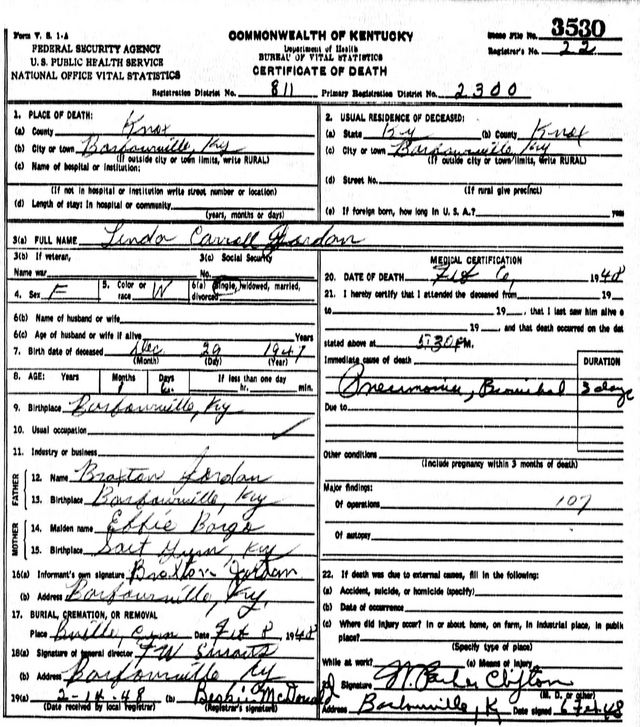 Form V. S. 1-A
COMMONWEALTH OF KENTUCKY
State File No. 3530
FEDERAL SECURITY AGENCY
Department of Health
Registrar's No. 22
U. S. PUBLIC HEALTH SERVICE
BUREAU OF VITAL STATISTICS
NATIONAL OFFICE VITAL STATISTICS
CERTIFICATE OF DEATH
Registration District No. 811 Primary Registration District No. 2300
1. PLACE OF DEATH:
(a) County Knox
(b) City or town Barbourville, Ky
(If outside city or town limits, write RURAL)
(c) Name of hospital or institution:
(If not in hospital or institution write street number or location)
(d) Length of stay: In hospital or community
(years, months or days)
2. USUAL RESIDENCE OF DECEASED:
(a) State Ky (b) County Knox
(c) City or town Barbourville, Ky
(If outside city or town limits, write RURAL)
(d) Street No.
(If rural give precinct)
(e) If foreign born, how long in U. S. A.? years
3(a) FULL NAME Linda Carroll Jordan
3(b) If veteran,
Name war
3(c) Social Security
No.
4. Sex F
5. Color or race W
6(a) Single, widowed, married,
divorced
6(b) Name of husband or wife
6(c) Age of husband or wife if alive Years
7. Birth date of deceased Dec. 29 1947
(Month) (Day) (Year)
8. AGE: Years Months Days If less than one day
1 hr. min.
9. Birthplace Barbourville, Ky
10. Usual occupation
11. Industry or business
FATHER
12. Name Braxton Jordan
13. Birthplace Barbourville, Ky
MOTHER
14. Maiden name Effie
15. Birthplace Ky
16(a) Informant's own signature Braxton Jordan
(b) Address Barbourville, Ky.
17. BURIAL, CREMATION, OR REMOVAL
Place Bville, Cem Date Feb 8, 1948
18(a) Signature of funeral director
(b) Address Barbourville Ky
19(a) 2-14-48 (b) McDonald
(Date received by local registrar) (Registrar's signature)
MEDICAL CERTIFICATION
20. DATE OF DEATH Feb 6, 1948
21. I hereby certify that I attended the deceased from 19
to 19 , that I last saw him alive o
19 , and that death occurred on the dat
stated above at 5:30 PM.
Immediate cause of death
DURATION
Pneumonia, Bronchial 3 days
Due to
Other conditions
(Include pregnancy within 3 months of death)
Major findings:
Of operations 107
Of autopsy
22. If death was due to external causes, fill in the following:
(a) Accident, suicide, or homicide (specify)
(b) Date of occurrence
(c) Where did injury occur? In or about home, on farm, in industrial place, in public
place?
(Specify type of place)
While at work? (e) Means of injury
23. Signature Parker Clifton
(M. D. or other)
Address Barbourville, K Date signed 48